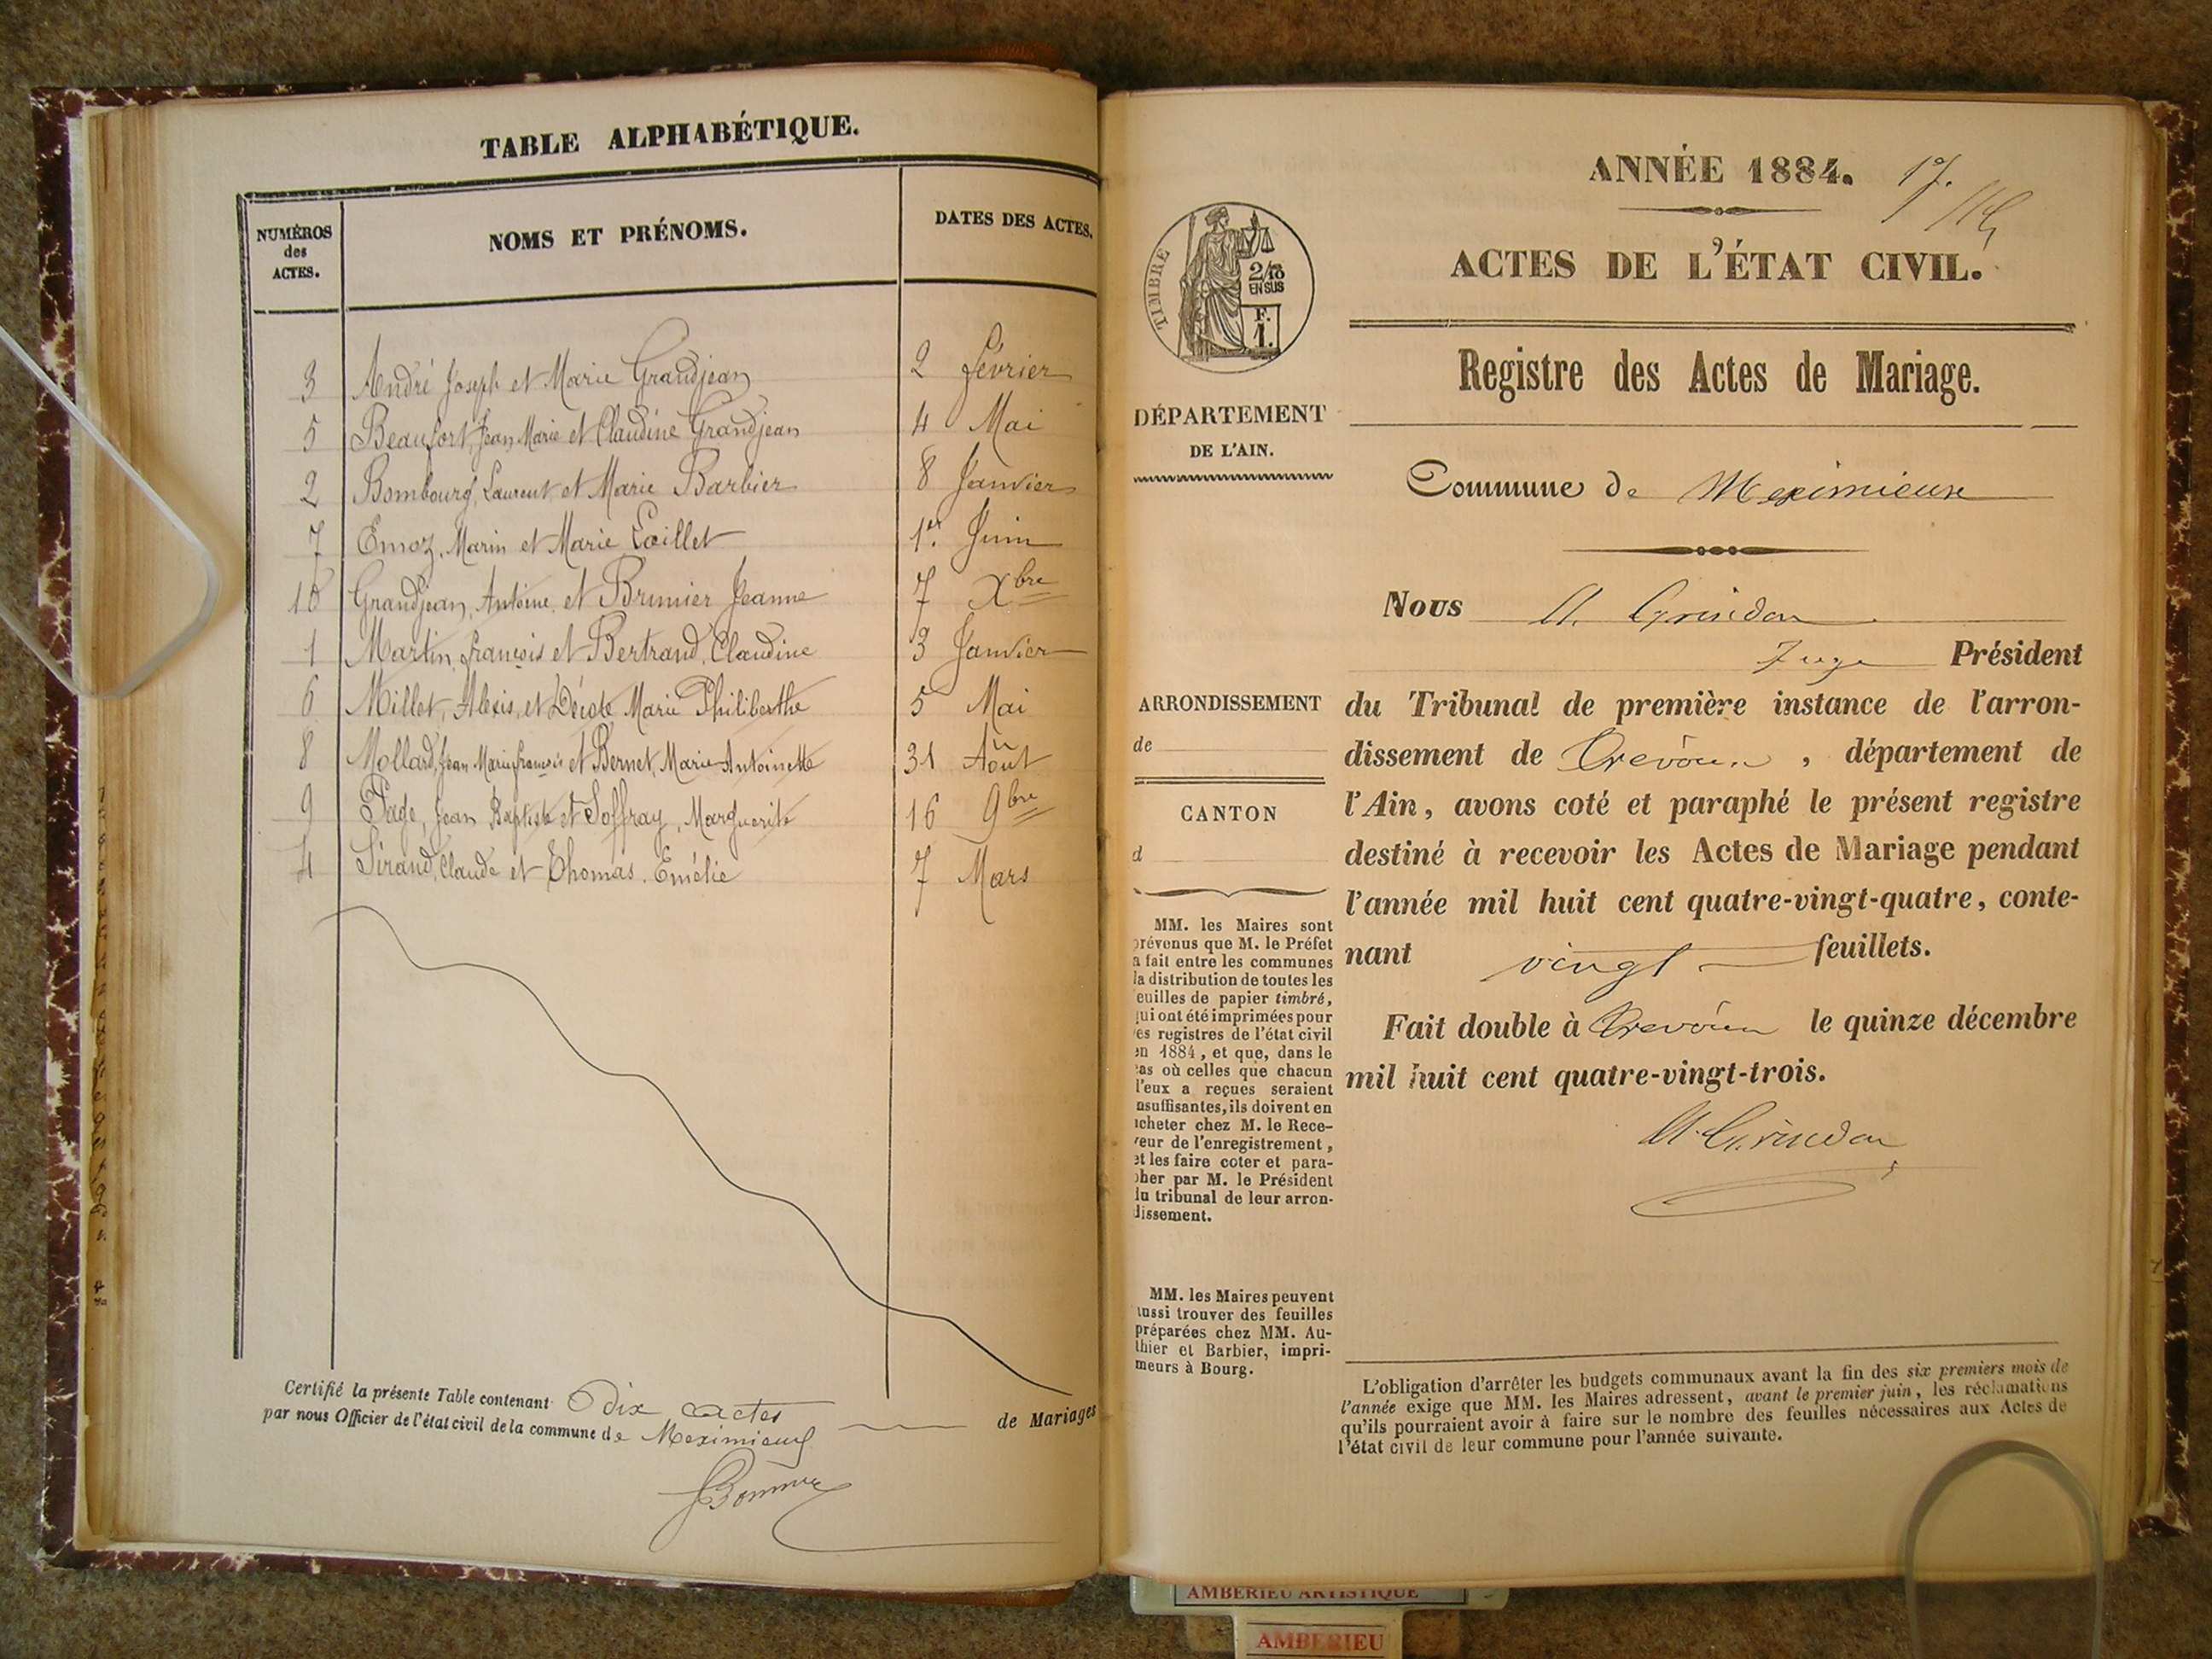 TABLE ALPHABÉTIQUE.
NUMÉROS des ACTES.
NOMS ET PRÉNOMS.
DATES DES ACTES.
3 André Joseph et Marie Grandjean 2 février
5 Beaufort, Jean Marie et Claudine Grandjean 4 Mai
2 Bombourg, Laurent et Marie Barbier 8 Janvier
7 Emoz, Marin et Marie 1er Juin
10 Grandjean, Antoine et Brunier Jeanne 7 Xbre
1 Martin, françois et Bertrand, Claudine 3 Janvier
6 Millet, Alexis, et Marie Philiberthe 5 Mai
8 Mollard, Jean Marie françois et Bernet, Marie Antoinette 31 Août
9 Page, Jean Baptiste et Soffray, Marguerite 16 9bre
4 Sirand, Claude et Thomas. Emélie 7 Mars
Certifié la présente Table contenant dix actes
par nous Officier de l'état civil de la commune de Meximieux de Mariages
ANNÉE 1884.
ACTES DE L'ÉTAT CIVIL.
TIMBRE
2/10
EN SUS
F.
1.
Registre des Actes de Mariage.
DÉPARTEMENT
DE L'AIN.
Commune de Meximieux
Nous A. Grindon
Juge Président
ARRONDISSEMENT
de
CANTON
d
du Tribunal de première instance de l'arron-
dissement de Trévoux, département de
l'Ain, avons coté et paraphé le présent registre
destiné à recevoir les Actes de Mariage pendant
l'année mil huit cent quatre-vingt-quatre, conte-
nant vingt feuillets.
Fait double à Trévoux le quinze décembre
mil huit cent quatre-vingt-trois.
A. Grindon
MM. les Maires sont
prévenus que M. le Préfet
a fait entre les communes
la distribution de toutes les
feuilles de papier timbré,
qui ont été imprimées pour
les registres de l'état civil
en 1884, et que, dans le
cas où celles que chacun
d'eux a reçues seraient
insuffisantes, ils doivent en
acheter chez M. le Rece-
veur de l'enregistrement,
et les faire coter et para-
pher par M. le Président
du tribunal de leur arron-
dissement.
MM. les Maires peuvent
aussi trouver des feuilles
préparées chez MM. Au-
thier et Barbier, impri-
meurs à Bourg.
L'obligation d'arrêter les budgets communaux avant la fin des six premiers mois de
l'année exige que MM. les Maires adressent, avant le premier juin, les réclamations
qu'ils pourraient avoir à faire sur le nombre des feuilles nécessaires aux Actes de
l'état civil de leur commune pour l'année suivante.
AMBERIEU ARTISTIQUE
AMBERIEU